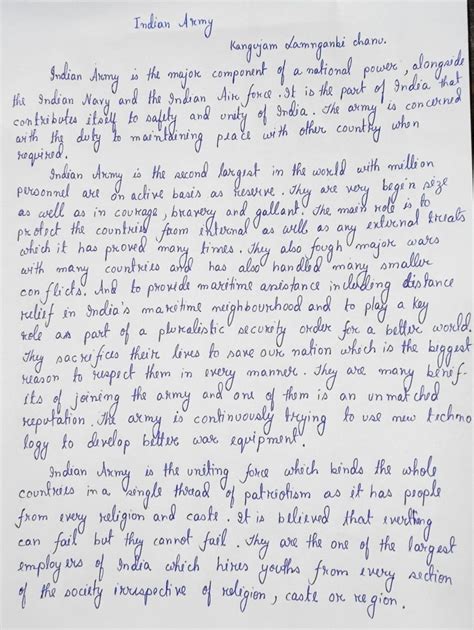 Indian Army
Kangujam Lamnganbi chanu.
Indian Army is the major component of a national power, alongside
the Indian Navy and the Indian Air force. It is the part of India that
contributes itself to safety and unity of India. The army is concerned
with the duty to maintaining peace with other country when
required.
Indian Army is the second largest in the world with million
personnel are on active basis as reserve. They are very begin size
as well as in courage, bravery and gallant. The main role is to
protect the countries from internal as wells as any external treats
which it has proved many times. They also fough major wars
with many countries and has also handled many smaller
conflicts. And to provide maritime assistance including distance
relief in India's maretime neighbourhood and to play a key
role as part of a pluralistic security order for a better world.
They sacrifices their lives to save our nation which is the biggest
reason to respect them in every manner. They are many benef-
its of joining the army and one of them is an unmatched
reputation. The army is continuously trying to use new techno
logy to develop better war equipment.
Indian Army is the uniting force which binds the whole
countries in a single thread of patriotism as it has people
from every religion and caste. It is believed that everthing
can fail but they cannot fail. They are the one of the largest
employers of India which hires youths from every section
of the society irrispective of religion, caste or region.